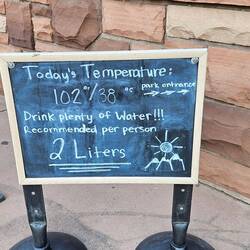 Today's Temperature:
102°/38 °c
park entrance
Drink plenty of Water!!!
Recommended per person
2 Liters